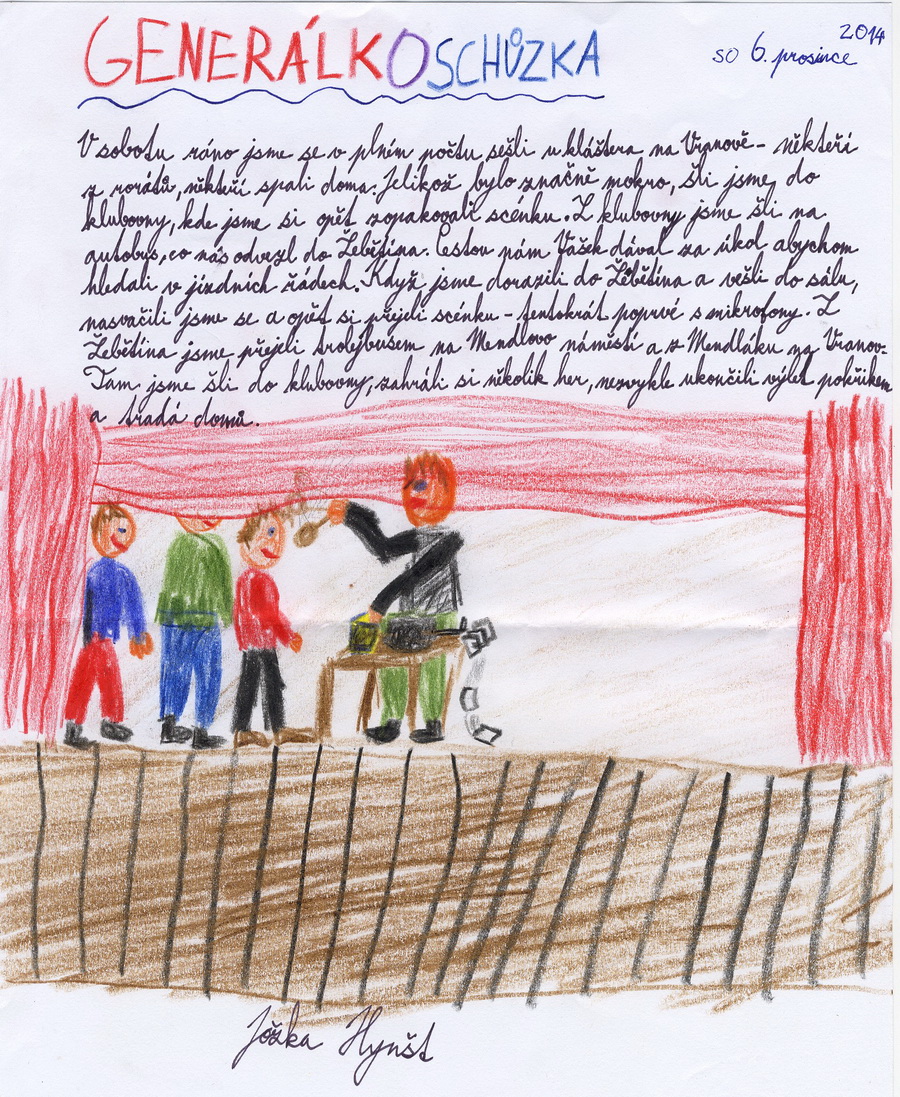 GENERÁLKOSCHŮZKA
2014
so 6. prosince
V sobotu ráno jsme se v plném počtu sešli u kláštera na Vranově - někteří
z rorátů, někteří spali doma. Jelikož bylo značně mokro, šli jsme do
klubovny, kde jsme si opět zopakovali scénku. Z klubovny jsme šli na
autobus, co nás odvezl do Žebětína. Cestou nám Vášek dával za úkol abychom
hledali v jízdních řádech. Když jsme dorazili do Žebětína a vešli do sálu,
nasvačili jsme se a opět si přejeli scénku - tentokrát poprvé s mikrofony. Z
Žebětína jsme přejeli trolejbusem na Mendlovo náměstí a z Mendláku na Vranov.
Tam jsme šli do klubovny, zahráli si několik her, nezvykle ukončili výlet pokřikem
a tradá domů.
Jožka Hynšt